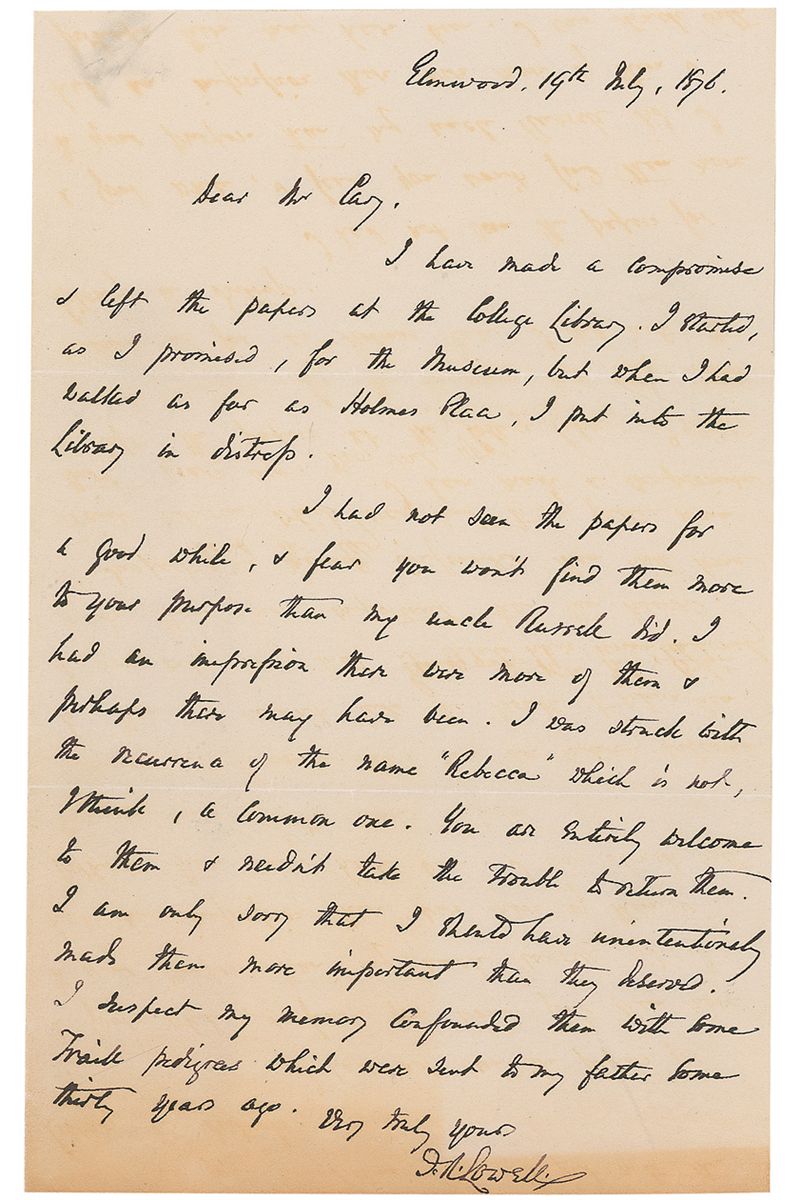 Elmwood, 19th July, 1876.
Dear Mr Cary,
I have made a compromise
& left the papers at the College Library. I started,
as I promised, for the Museum, but when I had
walked as far as Holmes Place, I put into the
Library in distress.
I had not seen the papers for
a good while, & fear you won't find them more
to your purpose than my uncle Russell did. I
had an impression there were more of them &
perhaps there may have been. I was struck with
the recurrence of the name "Rebecca" which is not,
I think, a common one. You are entirely welcome
to them & needn't take the trouble to return them.
I am only sorry that I should have unintentionally
made them more important than they deserved.
I suspect my memory confounded them with some
Traill pedigrees which were sent to my father some
thirty years ago.
Very truly yours
J. R. Lowell.